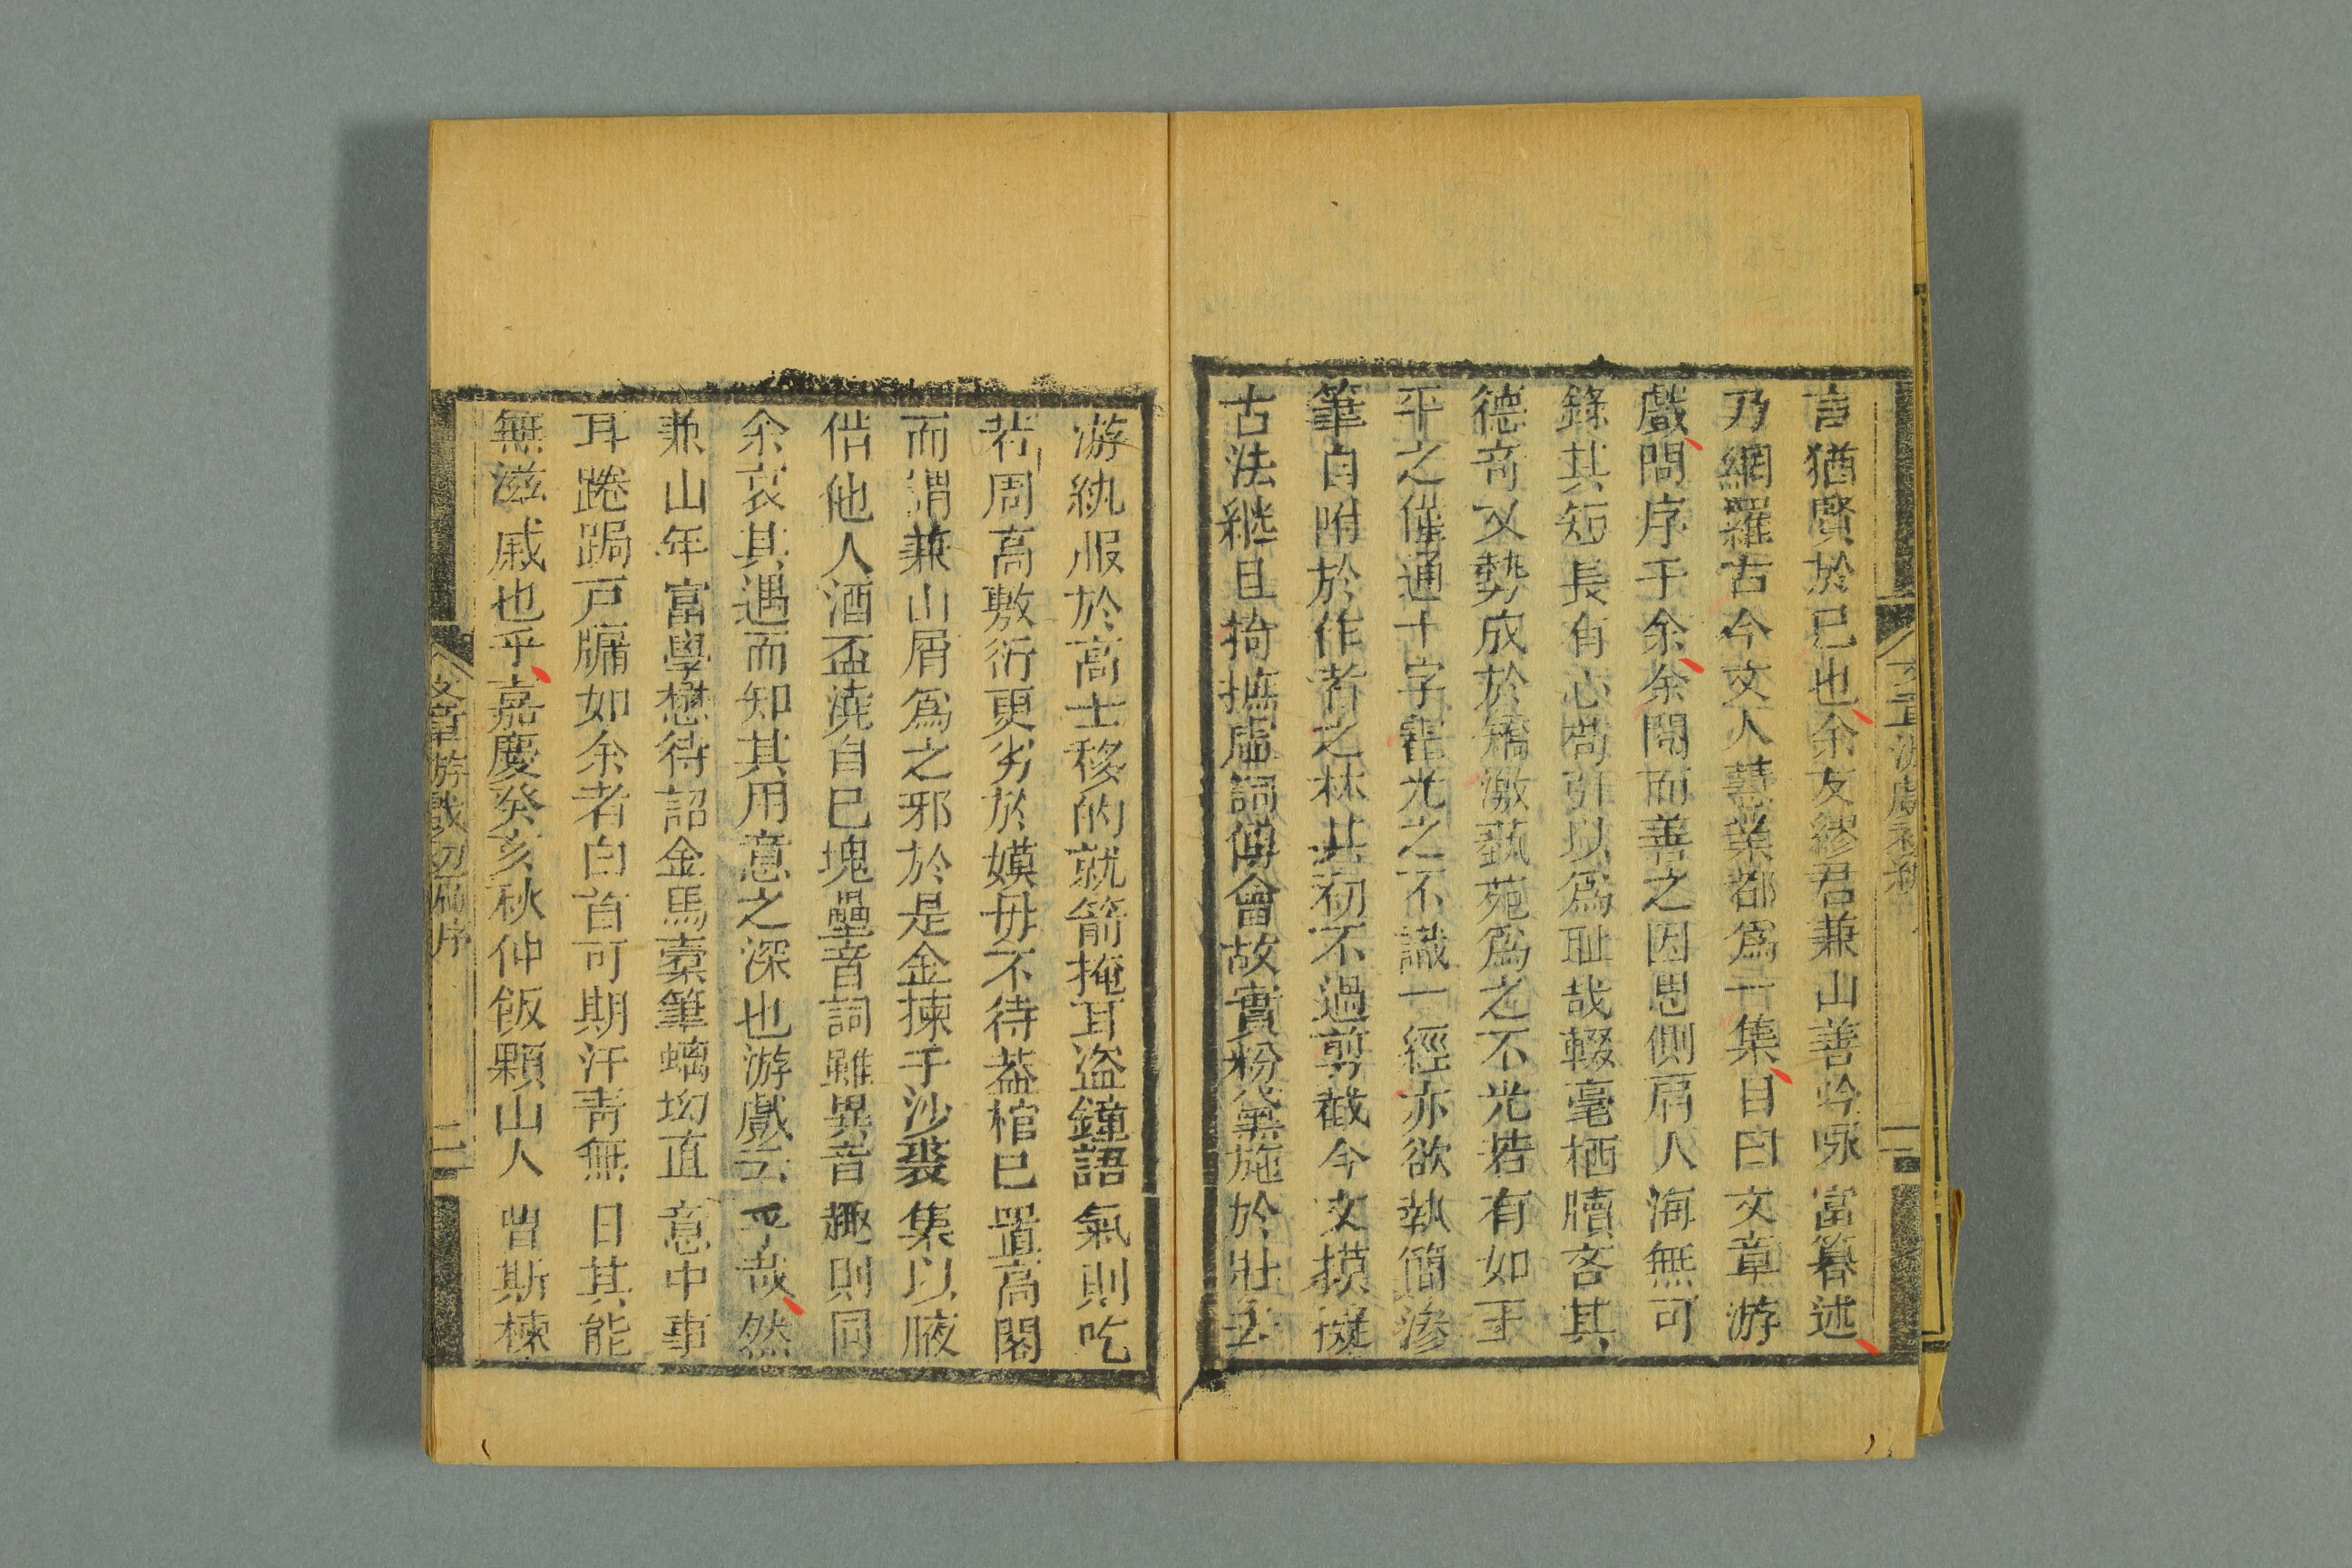 言猶賢於已也余友繆君兼山善吟咏富篹述
乃網羅古今文人慧業都爲一集目曰文章游
戲問序于余余閱而善之因思側肩人海無可
錄其短長有心苟引以爲耻哉輟毫栖牘吝其
德奇又勢成於矯激藝苑爲之不光若有如王
平之僅通十字竉光之不識一經亦欲執簡滲
筆自附於作者之林其初不過剪截今文摸擬
古法継且掎摭虛詞傅會故實粉黛施於壯士
游紈服於高士移的就箭掩耳盜鐘語氣則吃
若周高敷衍更劣於嫫毋不待葢棺已置高閣
而謂兼山屑爲之邪於是金揀于沙裘集以腋
借他人酒盃澆自已塊壘音詞雖異音趣則同
余哀其遇而知其用意之深也游戲云乎哉然
兼山年富學懋待詔金馬橐筆螭坳直意中事
耳踡跼戸牖如余者白首可期汗青無日其能
無滋戚也乎嘉慶癸亥秋仲飯顆山人曽斯棟
文章游戲初編序
二